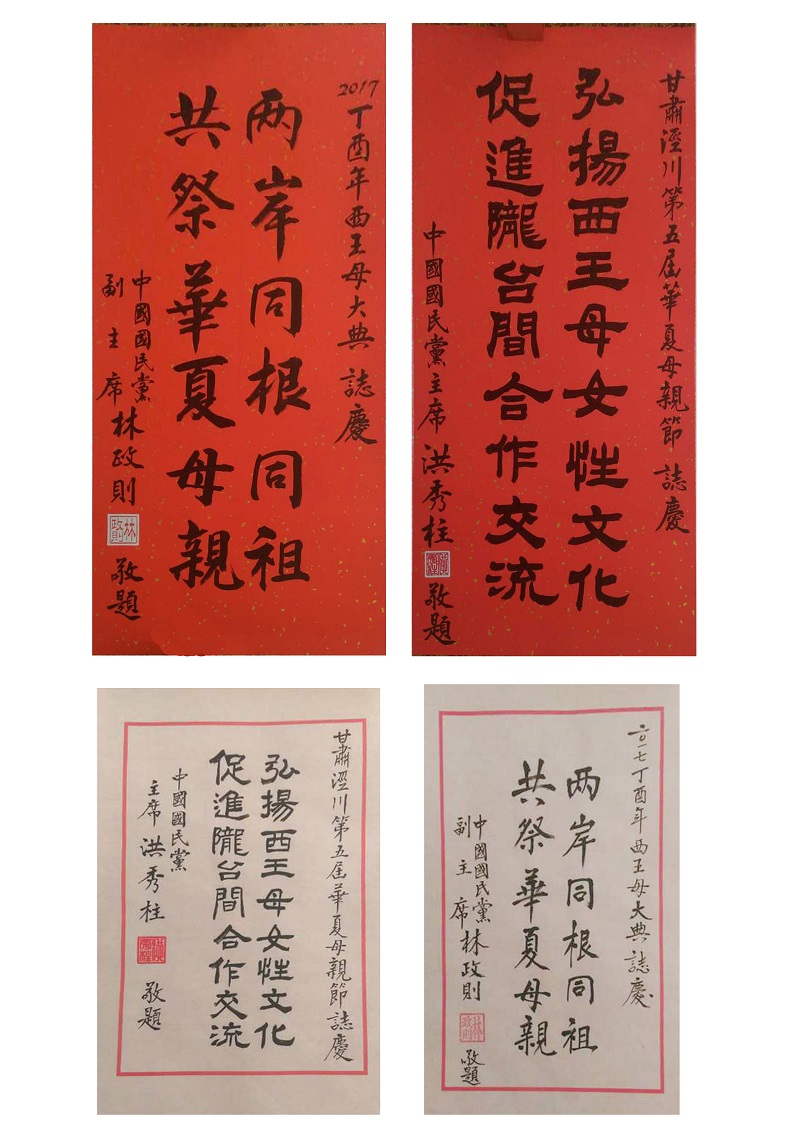 2017丁酉年西王母大典 誌慶
两岸同根同祖
共祭華夏母親
中國國民黨
副主席林政則
林政則
敬題
甘肅涇川第五届華夏母親節 誌慶
弘揚西王母女性文化
促進隴台間合作交流
中國國民黨主席 洪秀柱
敬題
甘肅涇川第五届華夏母親節誌慶
弘揚西王母女性文化
促進隴台間合作交流
中國國民黨
主席洪秀柱
敬題
二〇一七丁酉年西王母大典誌慶
两岸同根同祖
共祭華夏母親
中國國民黨
副主席林政則
林政則
敬題